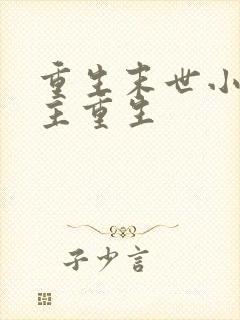 重生末世小
主重生
子少言